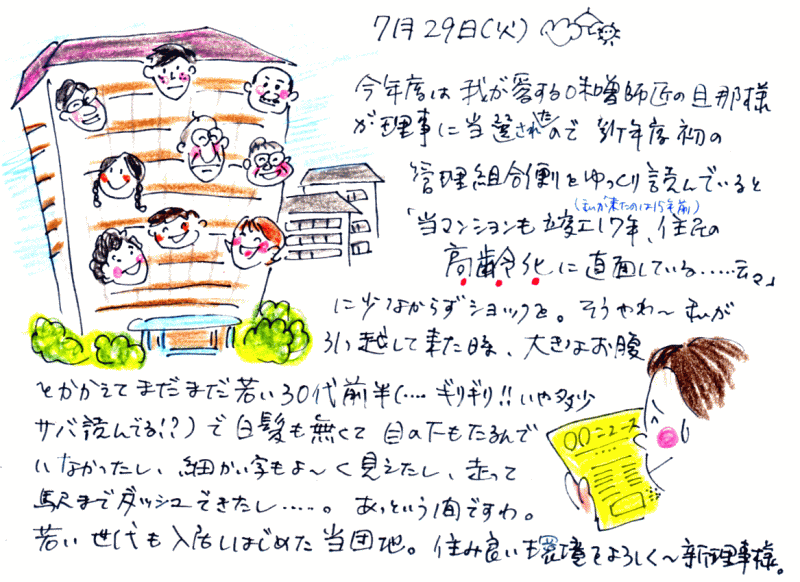 7月29日(火)
今年度は我が愛する味噌師匠の旦那様
が理事に当選されたので 新年度初の
管理組合便をゆっくり読んでいると
(私が来たのは15年前)
「当マンションも竣工17年、住民の
高齢化に直面している……云々」
に少なからずショックを。そうやわ〜私が
引越して来た時、大きなお腹
をかかえてまだまだ若い30代前半(…ギリギリ!!いや多少
サバ読んでる!?)で白髪も無くて目の下もたるんで
いなかったし、細かい字もよ〜く見えたし、走って
駅までダッシュできたし……。あっという間ですわ。
若い世代も入居しはじめた当団地。住み良い環境をよろしく〜新理事様。
〇〇ニュース